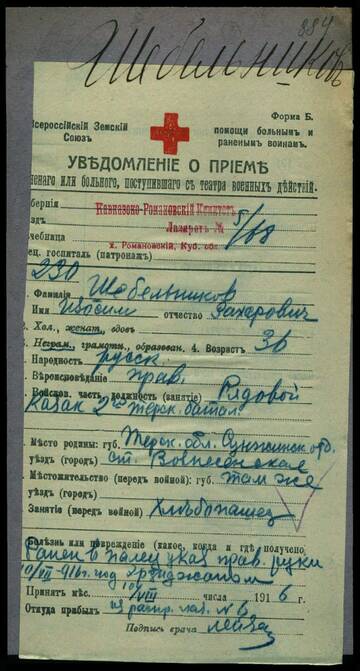 884
Шабельников
Всероссійскій Земскій
Союзъ
Форма Б.
помощи больнымъ и
раненымъ воинамъ.
УВѢДОМЛЕНІЕ О ПРІЕМѢ
раненаго или больного, поступившаго съ театра военныхъ дѣйствій.
Кавказско-Романовскій Комитетъ
Лазаретъ №
5/68
х. Романовскій, Куб. обл.
госпиталь (патронажъ)
230
Фамилія Шабельников
Имя отчество Захарович
Хол., женат, вдов
Неграм., грамотн., образован. 4. Возраст 36
Народность русск
Вѣроисповѣданіе прав.
Войсков. часть, должность (занятіе) Рядовой
Казак 2го Терск. батал.
Мѣсто родины: губ. Терск. обл. Сунженск. отд.
уѣзд (город) ст. Вознесенская
Мѣстожительство (перед войной): губ. там же
уѣзд (город)
Занятіе (перед войной) Хлѣбопашец
Болѣзнь или поврежденіе (какое, когда и гдѣ получено)
Ранен в палец указ. прав. руки
под
Принят мѣс. VIII числа 1916 г.
Откуда прибыл из распр. лаз. № 6
Подпись врача